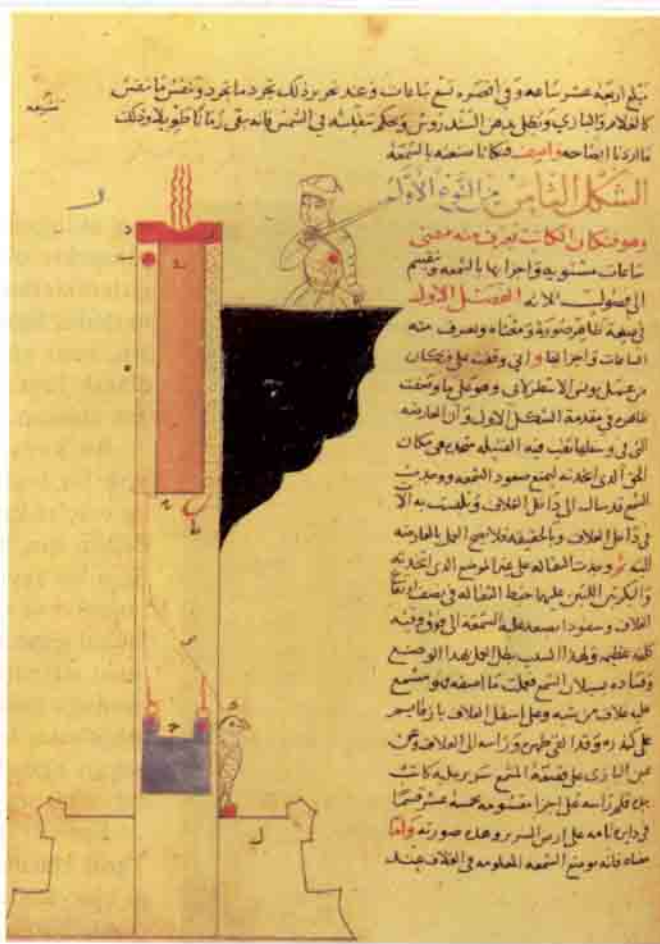 مبلغ اربعة عشر ساعة وفي اقصره تسع ساعات وعند تحرير ذلك تجرد ما تجرد وتنقش ما تنقش
كالغلام والبازي وتطلى بدهن السندروس وحكم تشقيله في الشمس فانه يبقى زمانا طويلا وذلك
ما اردنا ايضاحه واصف فنكانا صنعته بالشمعة
الشكل الثامن من النوع الاول
وهو فنكان الكاتب يعرف منه مضي
ساعات مستوية واجزائها بالشمعة وينقسم
الى فصول ثلاثة الفصل الاول
في صفة ظاهر صورته ومعناه ويعرف منه
الساعات واجزائها واني وقفت على فنكان
من عمل يونس الاسطرلابي وهو على ما وصفت
ظاهره في مقدمة الشكل الاول وان العارضة
التي في وسطها ثقب فيه الفتيلة متحدة هي مكان
الحق الذي اتخذته لمنع صعود الشمعة ووجدت
الشمع قد سال الى داخل الغلاف
في داخل الغلاف وبالحقيقة فلا يصح العمل بالعارضة
البتة ثم وجدت الثقالة على غير الموضع الذي اتخذته
والبكرتين اللتين عليهما خيط الثقالة في نصف ارتفاع
الغلاف وصعودا يصعد عليه الشمعة الى فوق وفيه
كلفة عظيمة ولهذا السبب بطل العمل بهذا الوضع
وفساده بسيلان الشمع فعملت ما اصفه
عليه غلاف من شبه وعلى اسفل الغلاف باز قائم
على كندره وقد الغى ظهره وراسه الى الغلاف وعن
يمين البازي على قصعة الشمع سرير عليه كاتب
بيده قلم راسه على اجزا مقسومة خمسة عشر قسما
في دايرة تامة على ارض السرير وهذه صورته واما
معناه فانه يوضع الشمعة المعلومة في الغلاف عند